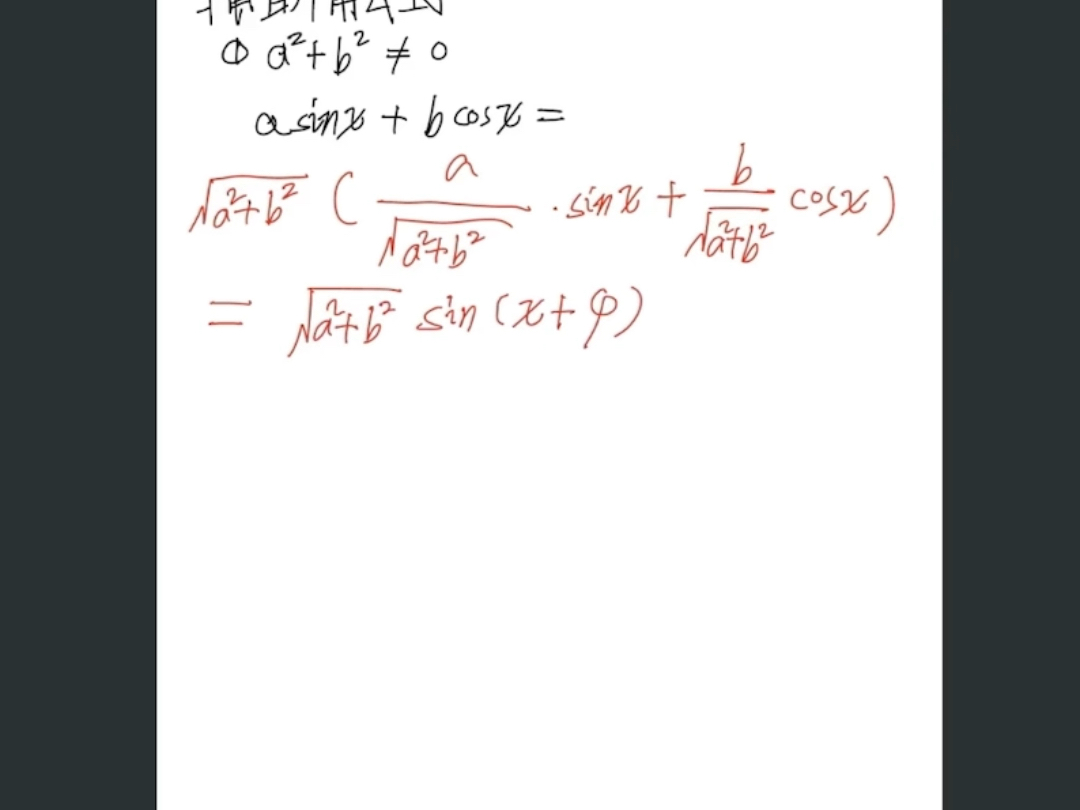 ① a²+b² ≠ 0
asinx + bcosx =
√(a²+b²) ( a/√(a²+b²) · sinx + b/√(a²+b²) cosx )
= √(a²+b²) sin (x+φ)